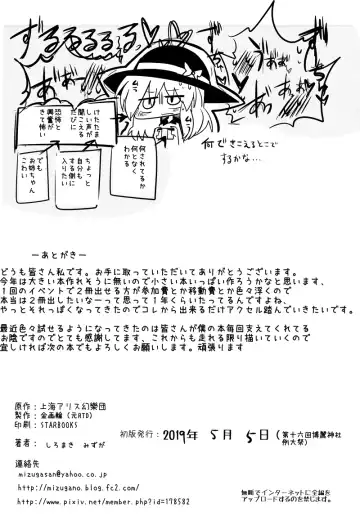 ずるるるるるっ
けたたま
しい声が
聞こえる
たびに
恐怖と
興奮が
きて怖い
ちょっと
自分も
する側に
入りたい
でも
お姉ちゃん
こわい
何されてるか
何となく
わかる
何できこえるとこで
するかな…
ーあとがきー
どうも皆さん私です。お手に取っていただいてありがとうございます。
今年は大きい本作れそうに無いので小さい本いっぱい作ろうかなと思います、
1回のイベントで2冊出せる方が参加費とか移動費とか色々浮くので
本当は2冊出したいなーって思って1年くらいたってるんですよね、
やっとそれっぽくなってきたのでコレから出来るだけアクセル踏んでいきたいです。
最近色々試せるようになってきたのは皆さんが僕の本毎回支えてくれてる
お陰ですのでとても感謝してます、これからも走れる限り描いていくので
宜しければ次の本でもよろしくお願いします。頑張ります
原作：上海アリス幻樂団
製作：金画輪（元RTD）
印刷：STARBOOKS
初版発行：2019年 5月 5日（第十六回博麗神社
例大祭）
著者： しろまき みずが
連絡先
mizugasan@yahoo.co.jp
http://mizugano.blog.fc2.com/
http://www.pixiv.net/member.php?id=178582
無断でインターネットに全編を
アップロードするのを禁じます。